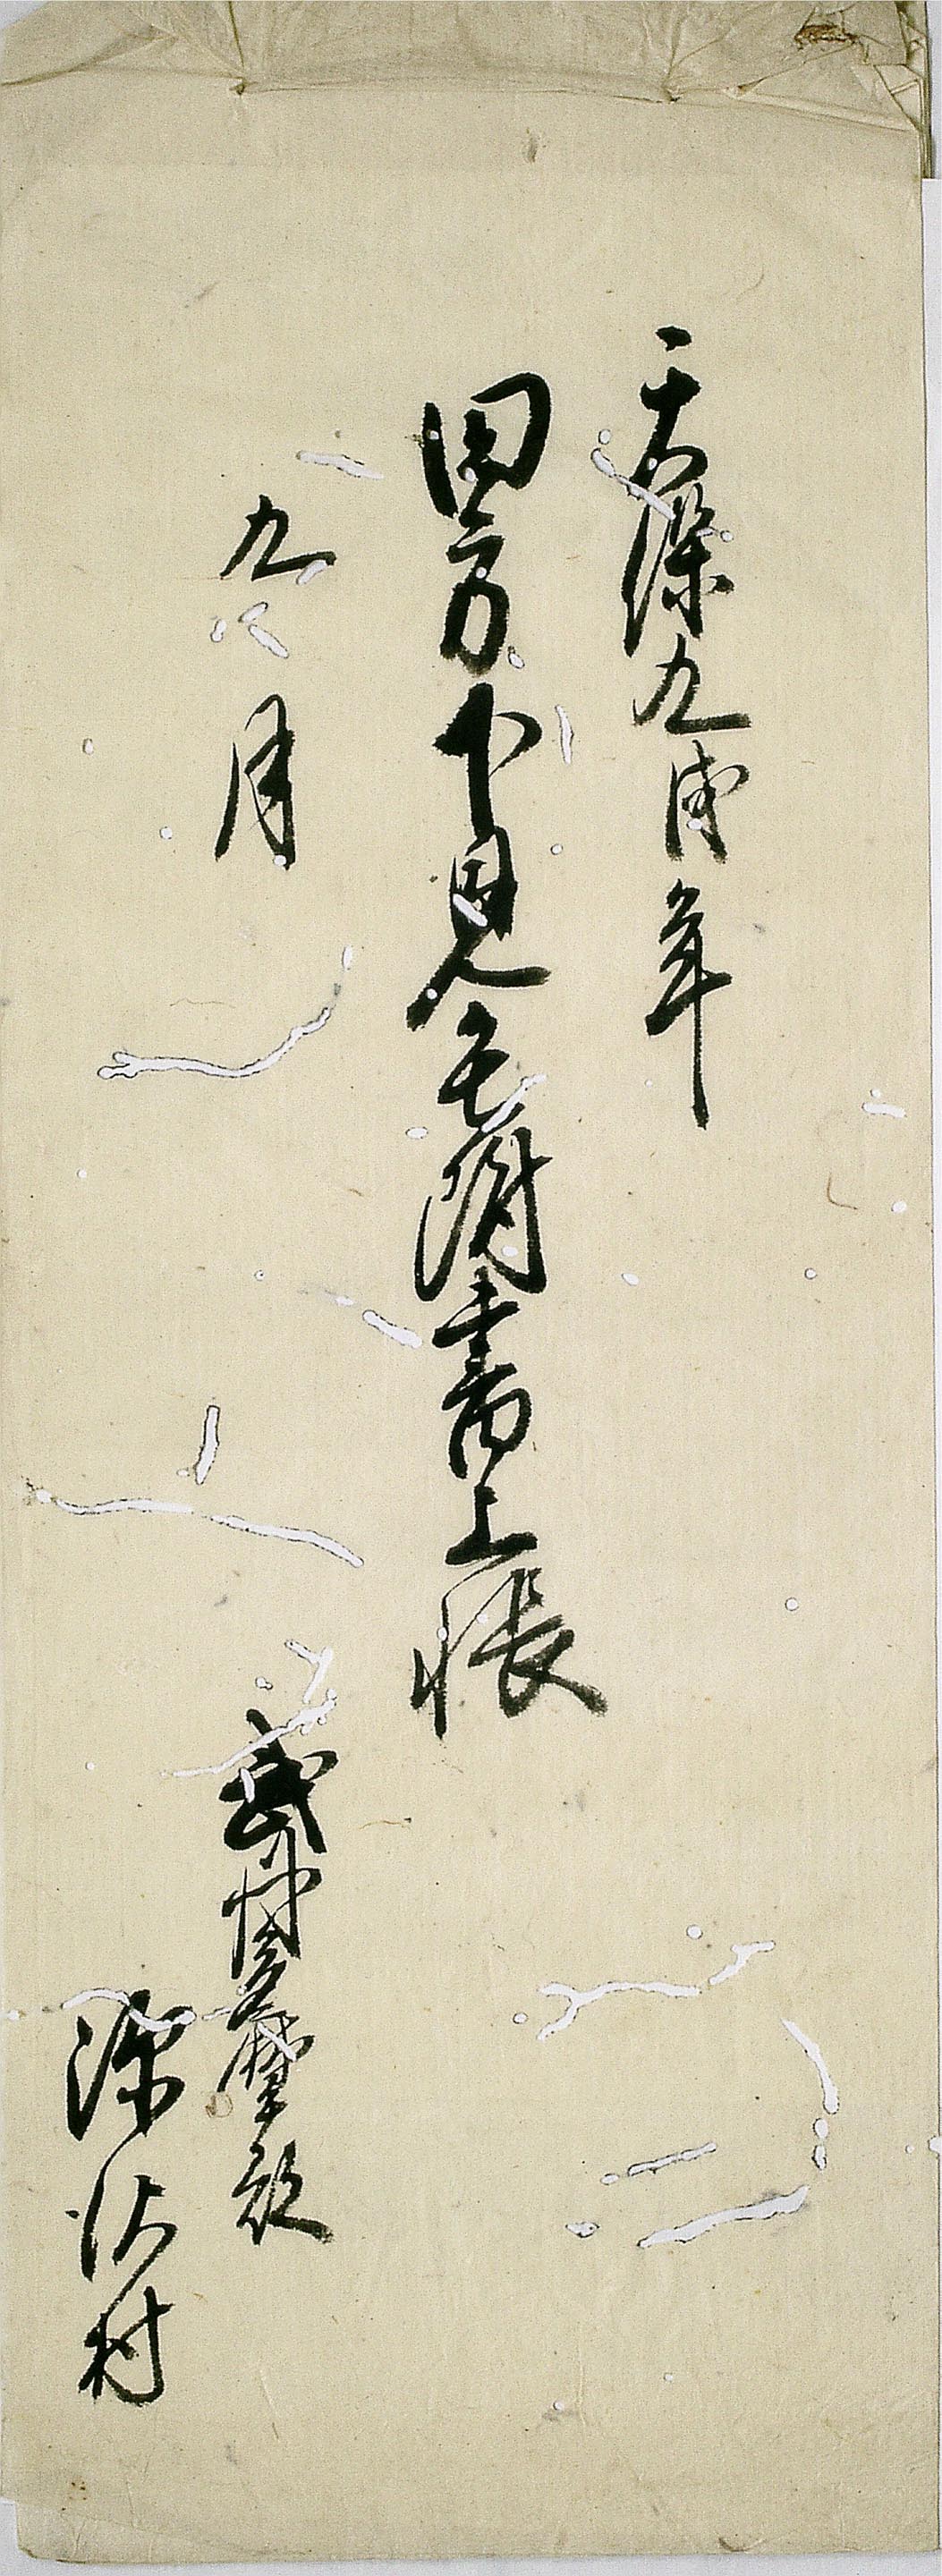 天保九戌年
田方下見毛附書上帳
九月
武州多摩郡
深沢村